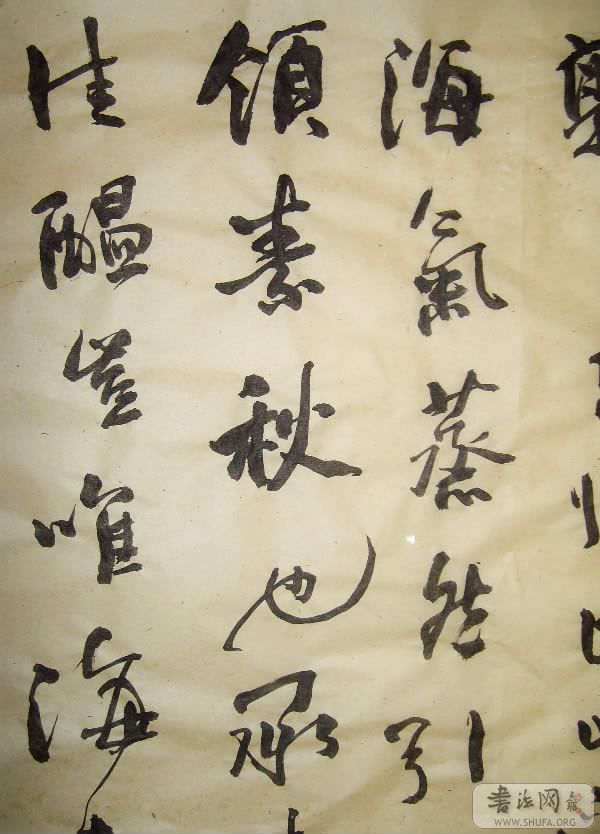 海氣蒸然引
領素秋也承
佳醞豈唯海
書法网
WWW.SHUFA.ORG